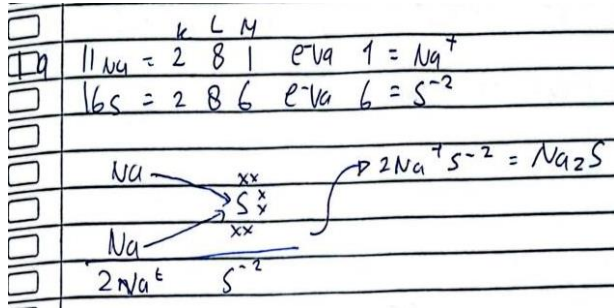 K L M
19 11Na = 2 8 1 e-va 1 = Na+
16S = 2 8 6 e-va 6 = S-2
Na
xx
S x x
xx
→ 2Na+ S-2 = Na2S
Na
2Na+ S-2